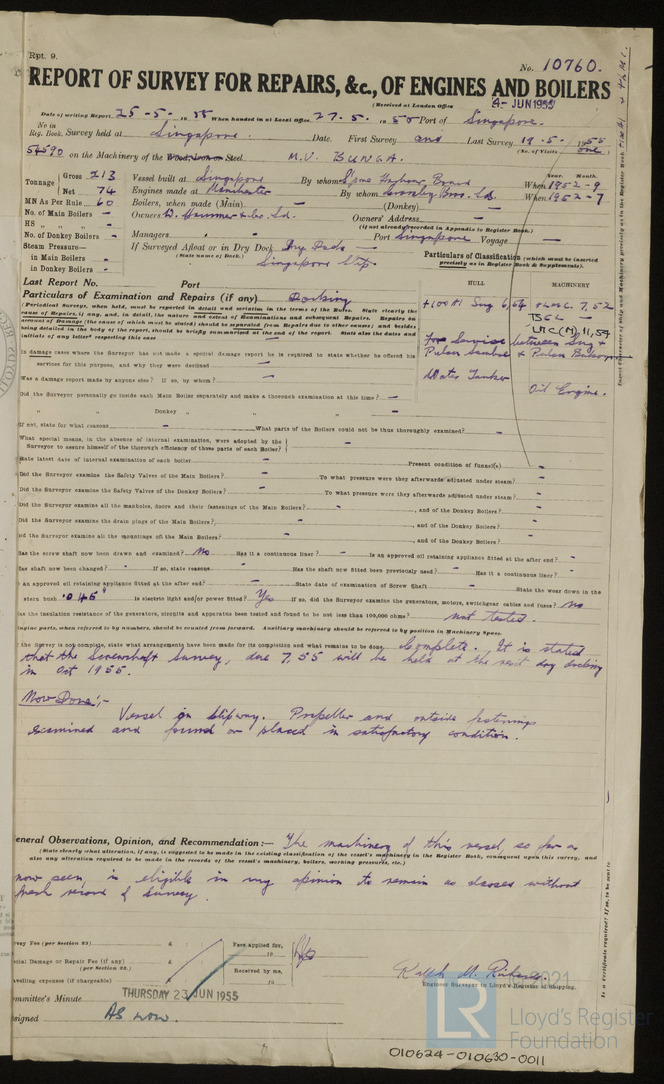 Rpt. 9.
No. 10760.
REPORT OF SURVEY FOR REPAIRS, &c., OF ENGINES AND BOILERS
(Received at London Office 4 - JUN 1955
Date of writing Report 25-5-1955 When handed in at Local Office 27.5.1955 Port of Singapore.
No in Reg. Book. Survey held at Singapore. Date. First Survey and Last Survey 19.5.1955
(No. of Visits one)
54590 on the Machinery of the Wood, Iron or Steel M.V. BUNGA.
Tonnage Gross 213 Vessel built at Singapore By whom S'pore Harbour Board When 1952-9
Year. Month.
Net 74 Engines made at Manchester By whom Crossley Bros. Ld. When 1952-7
MN As Per Rule 60 Boilers, when made (Main) - (Donkey) -
No. of Main Boilers - Owners Ld. Owners' Address -
(if not already recorded in Appendix to Register Book.)
HS
No. of Donkey Boilers - Managers Port Singapore Voyage -
Steam Pressure— If Surveyed Afloat or in Dry Dock Dry Dock
(State name of Dock.) Singapore
in Main Boilers -
in Donkey Boilers -
Particulars of Classification (which must be inserted precisely as in Register Book & Supplements).
Last Report No. Port
HULL MACHINERY
Particulars of Examination and Repairs (if any) Docking
+100A1 Sng 6,54 +LMC 7,52
TSCL -
LMC(M) 11,54
For Service between Sng &
Pulau & Pulau
Water Tanker
Oil Engine.
(Periodical Survey, when held, must be reported in detail and seriatim in the terms of the Rules. State clearly the
cause of Repairs, if any, and, in detail, the nature and extent of Examinations and subsequent Repairs. Repairs on
account of Damage (the cause of which must be stated) should be separated from Repairs due to other causes; and besides
being detailed in the body of the report, should be briefly summarised at the end of the report. State also the dates and
initials of any letter respecting this case
In damage cases where the Surveyor has not made a special damage report he is required to state whether he offered his
services for this purpose, and why they were declined -
Was a damage report made by anyone else? If so, by whom? -
Did the Surveyor personally go inside each Main Boiler separately and make a thorough examination at this time? -
" " Donkey " " " -
If not, state for what reasons - What parts of the Boilers could not be thus thoroughly examined? -
What special means, in the absence of internal examination, were adopted by the
Surveyor to assure himself of the thorough efficiency of those parts of each Boiler? -
State latest date of internal examination of each boiler - Present condition of funnel(s) -
Did the Surveyor examine the Safety Valves of the Main Boilers? - To what pressure were they afterwards adjusted under steam? -
Did the Surveyor examine the Safety Valves of the Donkey Boilers? - To what pressure were they afterwards adjusted under steam? -
Did the Surveyor examine all the manholes, doors and their fastenings of the Main Boilers? - , and of the Donkey Boilers? -
Did the Surveyor examine the drain plugs of the Main Boilers? - , and of the Donkey Boilers? -
Did the Surveyor examine all the mountings of the Main Boilers? - , and of the Donkey Boilers? -
Has the screw shaft now been drawn and examined? No Has it a continuous liner? - Is an approved oil retaining appliance fitted at the after end? -
Has shaft now been changed? - If so, state reasons Has the shaft now fitted been previously used? - Has it a continuous liner? -
an approved oil retaining appliance fitted at the after end? - State date of examination of Screw Shaft - State the wear down in the
stern bush .045" Is electric light and/or power fitted? Yes If so, did the Surveyor examine the generators, motors, switchgear cables and fuses? No
Has the insulation resistance of the generators, circuits and apparatus been tested and found to be not less than 100,000 ohms? not tested.
Engine parts, when referred to by numbers, should be counted from forward. Auxiliary machinery should be referred to by position in Machinery Space.
the Survey is not complete, state what arrangements have been made for its completion and what remains to be done. Complete. It is stated
that the Screwshaft Survey, due 7.55 will be held at the next dry docking
in Oct 1955.
Now Done:-
Vessel on slipway. Propeller and outside fastenings
examined and found or placed in satisfactory condition.
General Observations, Opinion, and Recommendation:— The machinery of this vessel, so far as
(State clearly what alteration, if any, is suggested to be made in the existing classification of the vessel's machinery in the Register Book, consequent upon this survey, and
also any alteration required to be made in the records of the vessel's machinery, boilers, working pressures, etc.)
now seen, is eligible in my opinion to remain as classed without
fresh record of survey.
Survey Fee (per Section 23) £
Fees applied for, 19
Special Damage or Repair Fee (if any) £
(per Section 23.)
Received by me, 19
Travelling expenses (if chargeable)
Engineer Surveyor to Lloyd's Register of Shipping.
Committee's Minute THURSDAY 23 JUN 1955
Assigned As now.
LR Lloyd's Register Foundation
010624-010630-0011